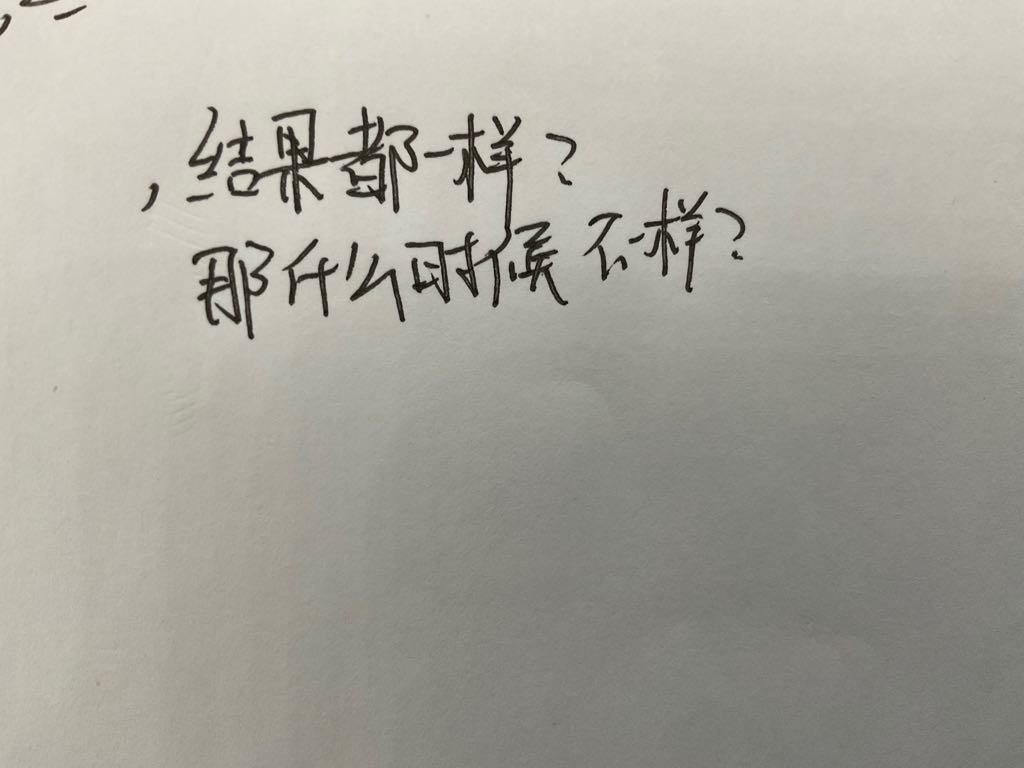 ，结果都一样？
那什么时候不一样？